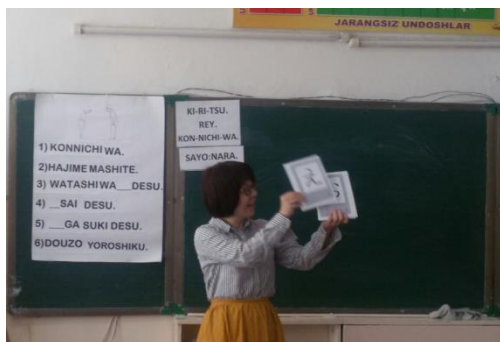 JARANGSIZ UNDOSHLAR
1) KONNICHI WA.
2)HAJIME MASHITE.
3) WATASHI WA___DESU.
4) __SAI DESU.
5) ___GA SUKI DESU.
6)DOUZO YOROSHIKU.
KI-RI-TSU.
REY.
KON-NICHI-WA.
SAYO:NARA.